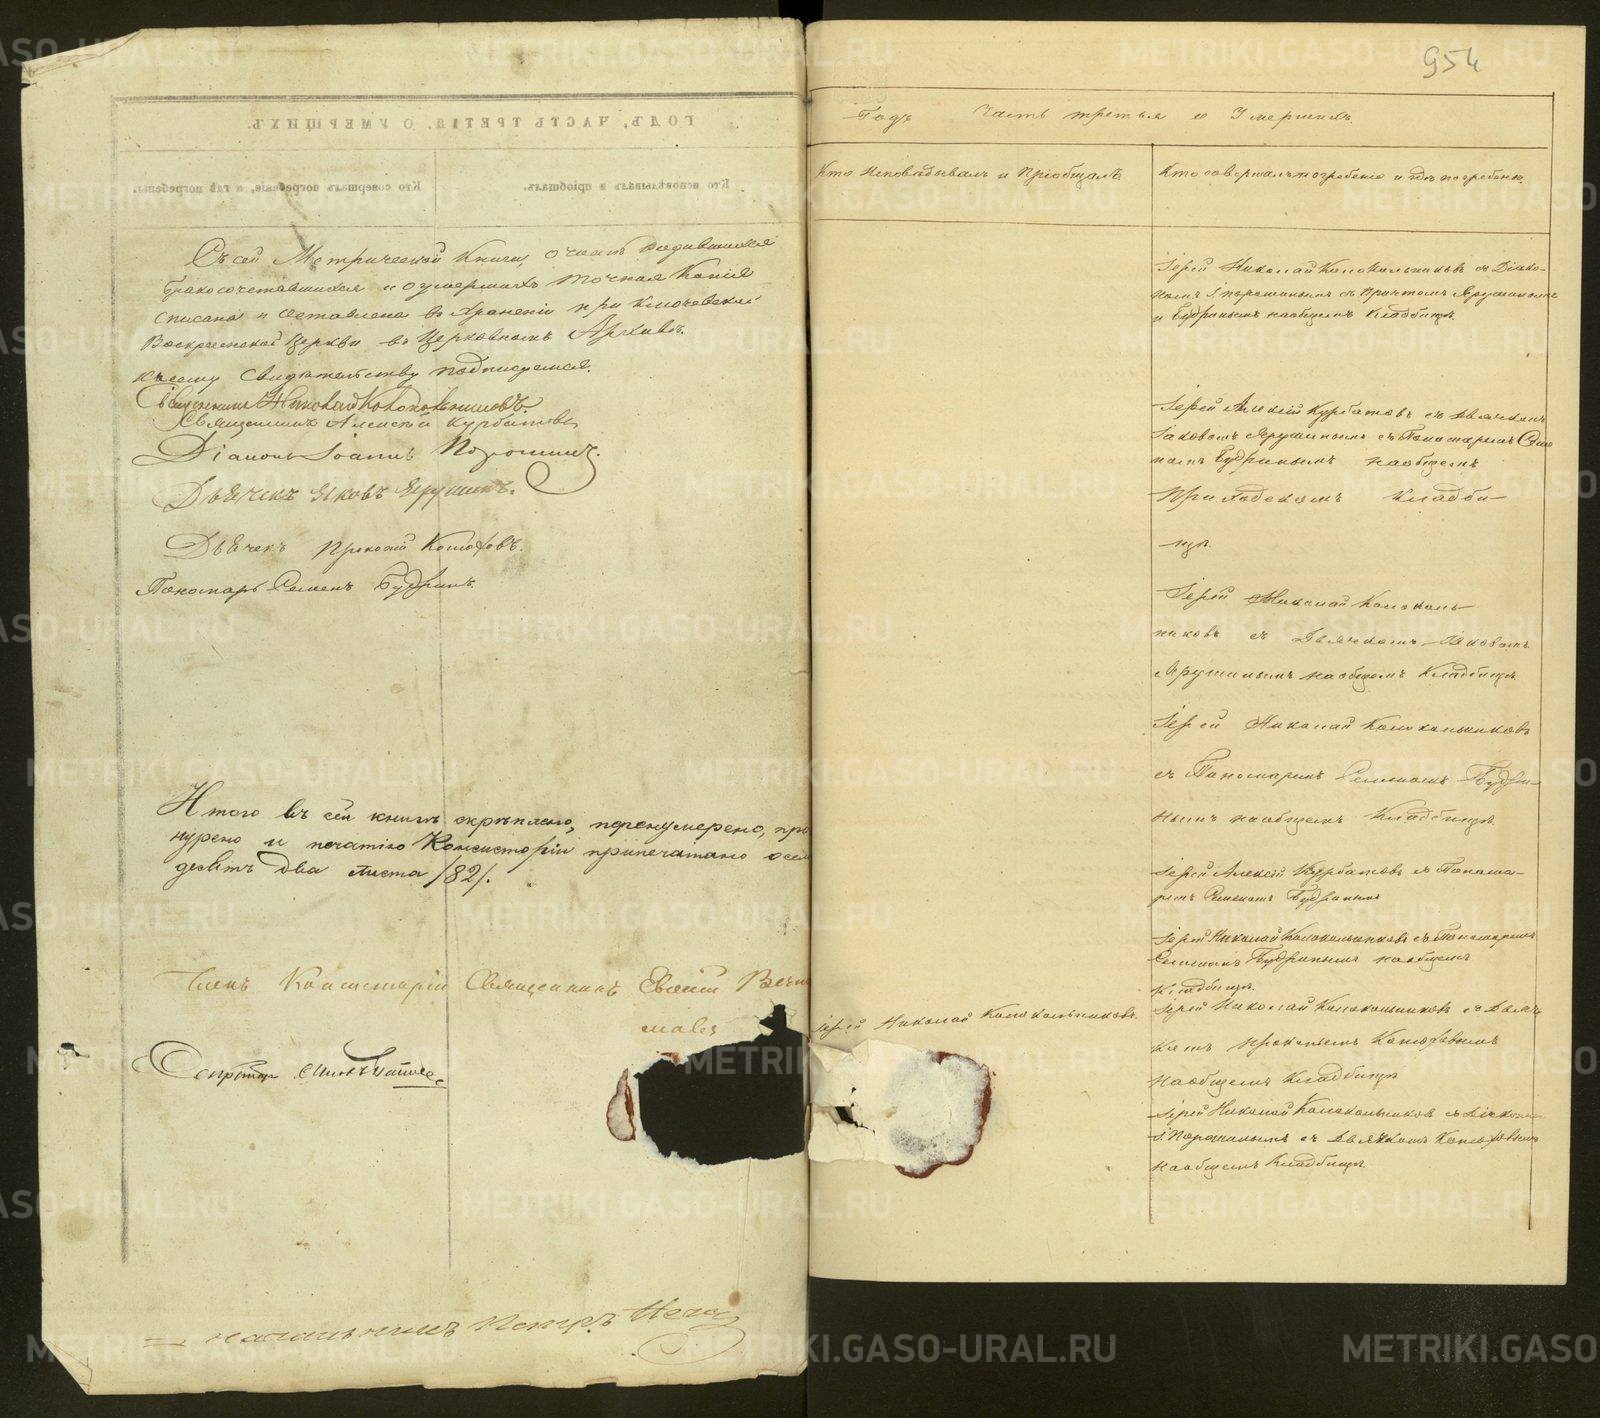 Съ сей Метрической Книги, о
бракосочетавшихся и о умершихъ точная Копія
списана и оставлена въ храненіи при Ключевской
Воскресенской Церкви въ Церковномъ Архивѣ.
къ сему свидѣтельству подписуемся.
Священникъ Николай Колокольниковъ.
Священникъ Алексѣй Курбатовъ
Діаконъ Іоаннъ Порошинъ.
Дьячекъ Яковъ Ярушинъ.
Дьячекъ Прокопій Конюховъ.
Пономарь Семенъ Будринъ.
Итого въ сей книгѣ скрѣплено, перенумерено, про
нурено и печатію Консисторіи припечатано осем
десятъ два листа /82/.
Членъ Консисторіи Священникъ Евгеній
Секретарь
Петръ
954
Годъ Часть третья о Умершихъ.
Кто Исповѣдывалъ и Пріобщалъ
Кто совершалъ погребеніе и гдѣ погребены.
Іерей Николай Колокольниковъ съ Діако-
номъ І. Порошинымъ съ Причтомъ Ярушинымъ
и Будринымъ на общемъ Кладбищѣ.
Іерей Алексій Курбатовъ съ Дьячкомъ
Іаковомъ Ярушинымъ съ Пономаремъ Семе
номъ Будринымъ на общемъ
Приходскомъ Кладби-
щѣ.
Іерей Николай Колоколь-
никовъ съ Дьячкомъ Іаковомъ
Ярушинымъ на общемъ Кладбищѣ
Іерей Николай Колокольниковъ
съ Пономаремъ Семеномъ Будри-
нымъ на общемъ Кладбищѣ.
Іерей Алексій Курбатовъ съ Понома-
ремъ Семеномъ Будринымъ
Іерей Николай Колокольниковъ съ Пономаремъ
Семеномъ Будринымъ на общемъ
Кладбищѣ.
Іерей Николай Колокольниковъ.
Іерей Николай Колокольниковъ съ Дьяч-
комъ Прокопьемъ Конюховымъ
на общемъ Кладбищѣ
Іерей Николай Колокольниковъ съ Діакономъ
І. Порошинымъ съ Дьячкомъ Конюховымъ
на общемъ Кладбищѣ.
METRIKI.GASO-URAL.RU